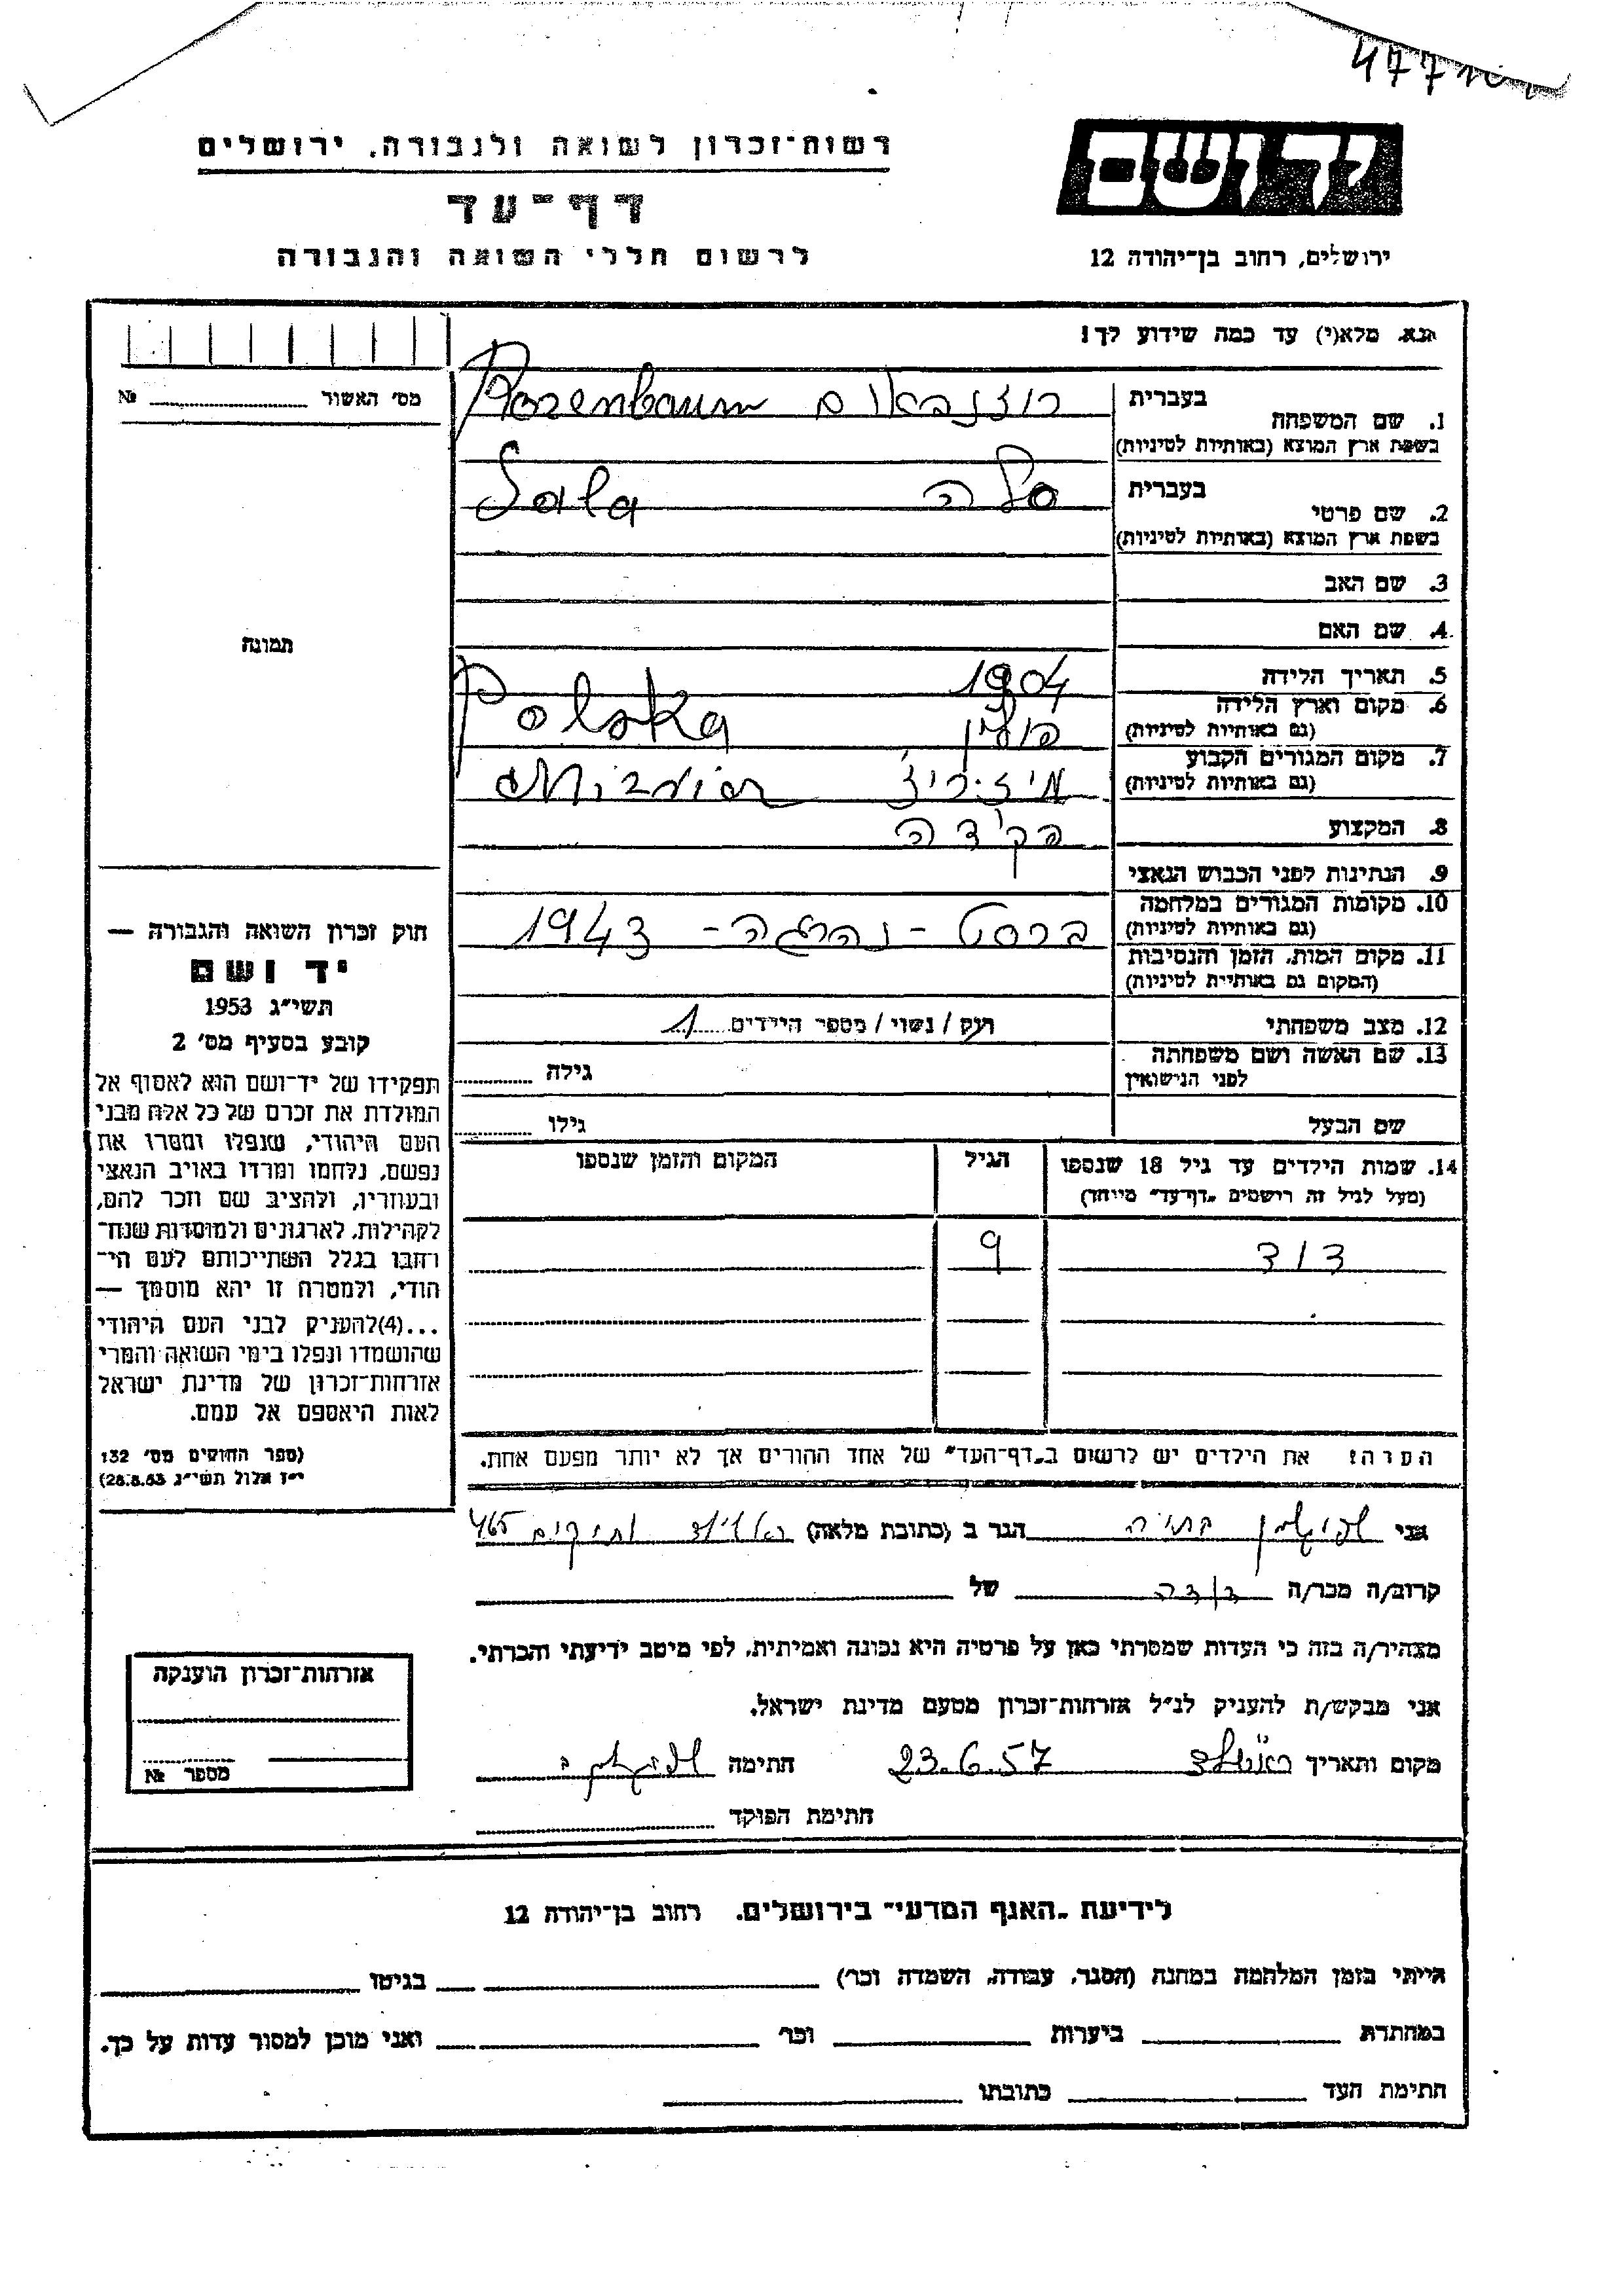 רשות־זכרון לשואה ולגבורה, ירושלים
דף־עד
לרשום חללי השואה והגבורה
יד ושם
ירושלים, רחוב בן־יהודה 12
נא מלא(י) עד כמה שידוע לך!
מס׳ האשור № 
תמונה
חוק זכרון השואה והגבורה —
יד ושם
תשי״ג 1953
קובע בסעיף מס׳ 2
תפקידו של יד־ושם הוא לאסוף אל
המולדת את זכרם של כל אלה מבני
העם היהודי, שנפלו ומסרו את
נפשם, נלחמו ומרדו באויב הנאצי
ובעוזריו, ולהציב שם וזכר להם,
לקהילות, לארגונים ולמוסדות שנח־
רבו בגלל השתייכותם לעם הי־
הודי, ולמטרה זו יהא מוסמך —
...(4)להעניק לבני העם היהודי
שהושמדו ונפלו בימי השואה והמרי
אזרחות־זכרון של מדינת ישראל
לאות היאספם אל עמם.
(ספר החוקים מס׳ 132
י״ז אלול תשי״ג 28.8.53)
בעברית
1. שם המשפחה רוזנבאום Rozenbaum
בשפת ארץ המוצא (באותיות לטיניות)
בעברית
2. שם פרטי סלה Sala
בשפת ארץ המוצא (באותיות לטיניות)
3. שם האב
4. שם האם
5. תאריך הלידה 1904
6. מקום וארץ הלידה פולין Polska
(גם באותיות לטיניות)
7. מקום המגורים הקבוע מיזריץ
(גם באותיות לטיניות)
8. המקצוע פקידה
9. הנתינות לפני הכבוש הנאצי
10. מקומות המגורים במלחמה
(גם באותיות לטיניות) ברסט - נהרגה - 1943
11. מקום המות, הזמן והנסיבות
(המקום גם באותיות לטיניות)
12. מצב משפחתי רוק / נשוי / מספר הילדים 1
13. שם האשה ושם משפחתה גילה
לפני הנישואין
שם הבעל גילו
14. שמות הילדים עד גיל 18 שנספו הגיל המקום והזמן שנספו
(מעל לגיל זה רושמים „דף־עד״ מיוחד)
דוד 9
הערה: את הילדים יש לרשום ב„דף־העד״ של אחד ההורים אך לא יותר מפעם אחת.
אני הגר ב (כתובת מלאה) ותיקים 465
קרוב/ה מכר/ה דודה של
מצהיר/ה בזה כי העדות שמסרתי כאן על פרטיה היא נכונה ואמיתית, לפי מיטב ידיעתי והכרתי.
אני מבקש/ת להעניק לנ״ל אזרחות־זכרון מטעם מדינת ישראל.
מקום ותאריך 23.6.57 חתימה
חתימת הפוקד
אזרחות־זכרון הוענקה
מספר №
לידיעת „האגף המדעי״ בירושלים, רחוב בן־יהודה 12
הייתי בזמן המלחמה במחנה (הסגר, עבודה, השמדה וכו׳) בגיטו
במחתרת ביערות וכו׳ ואני מוכן למסור עדות על כך.
חתימת העד כתובתו